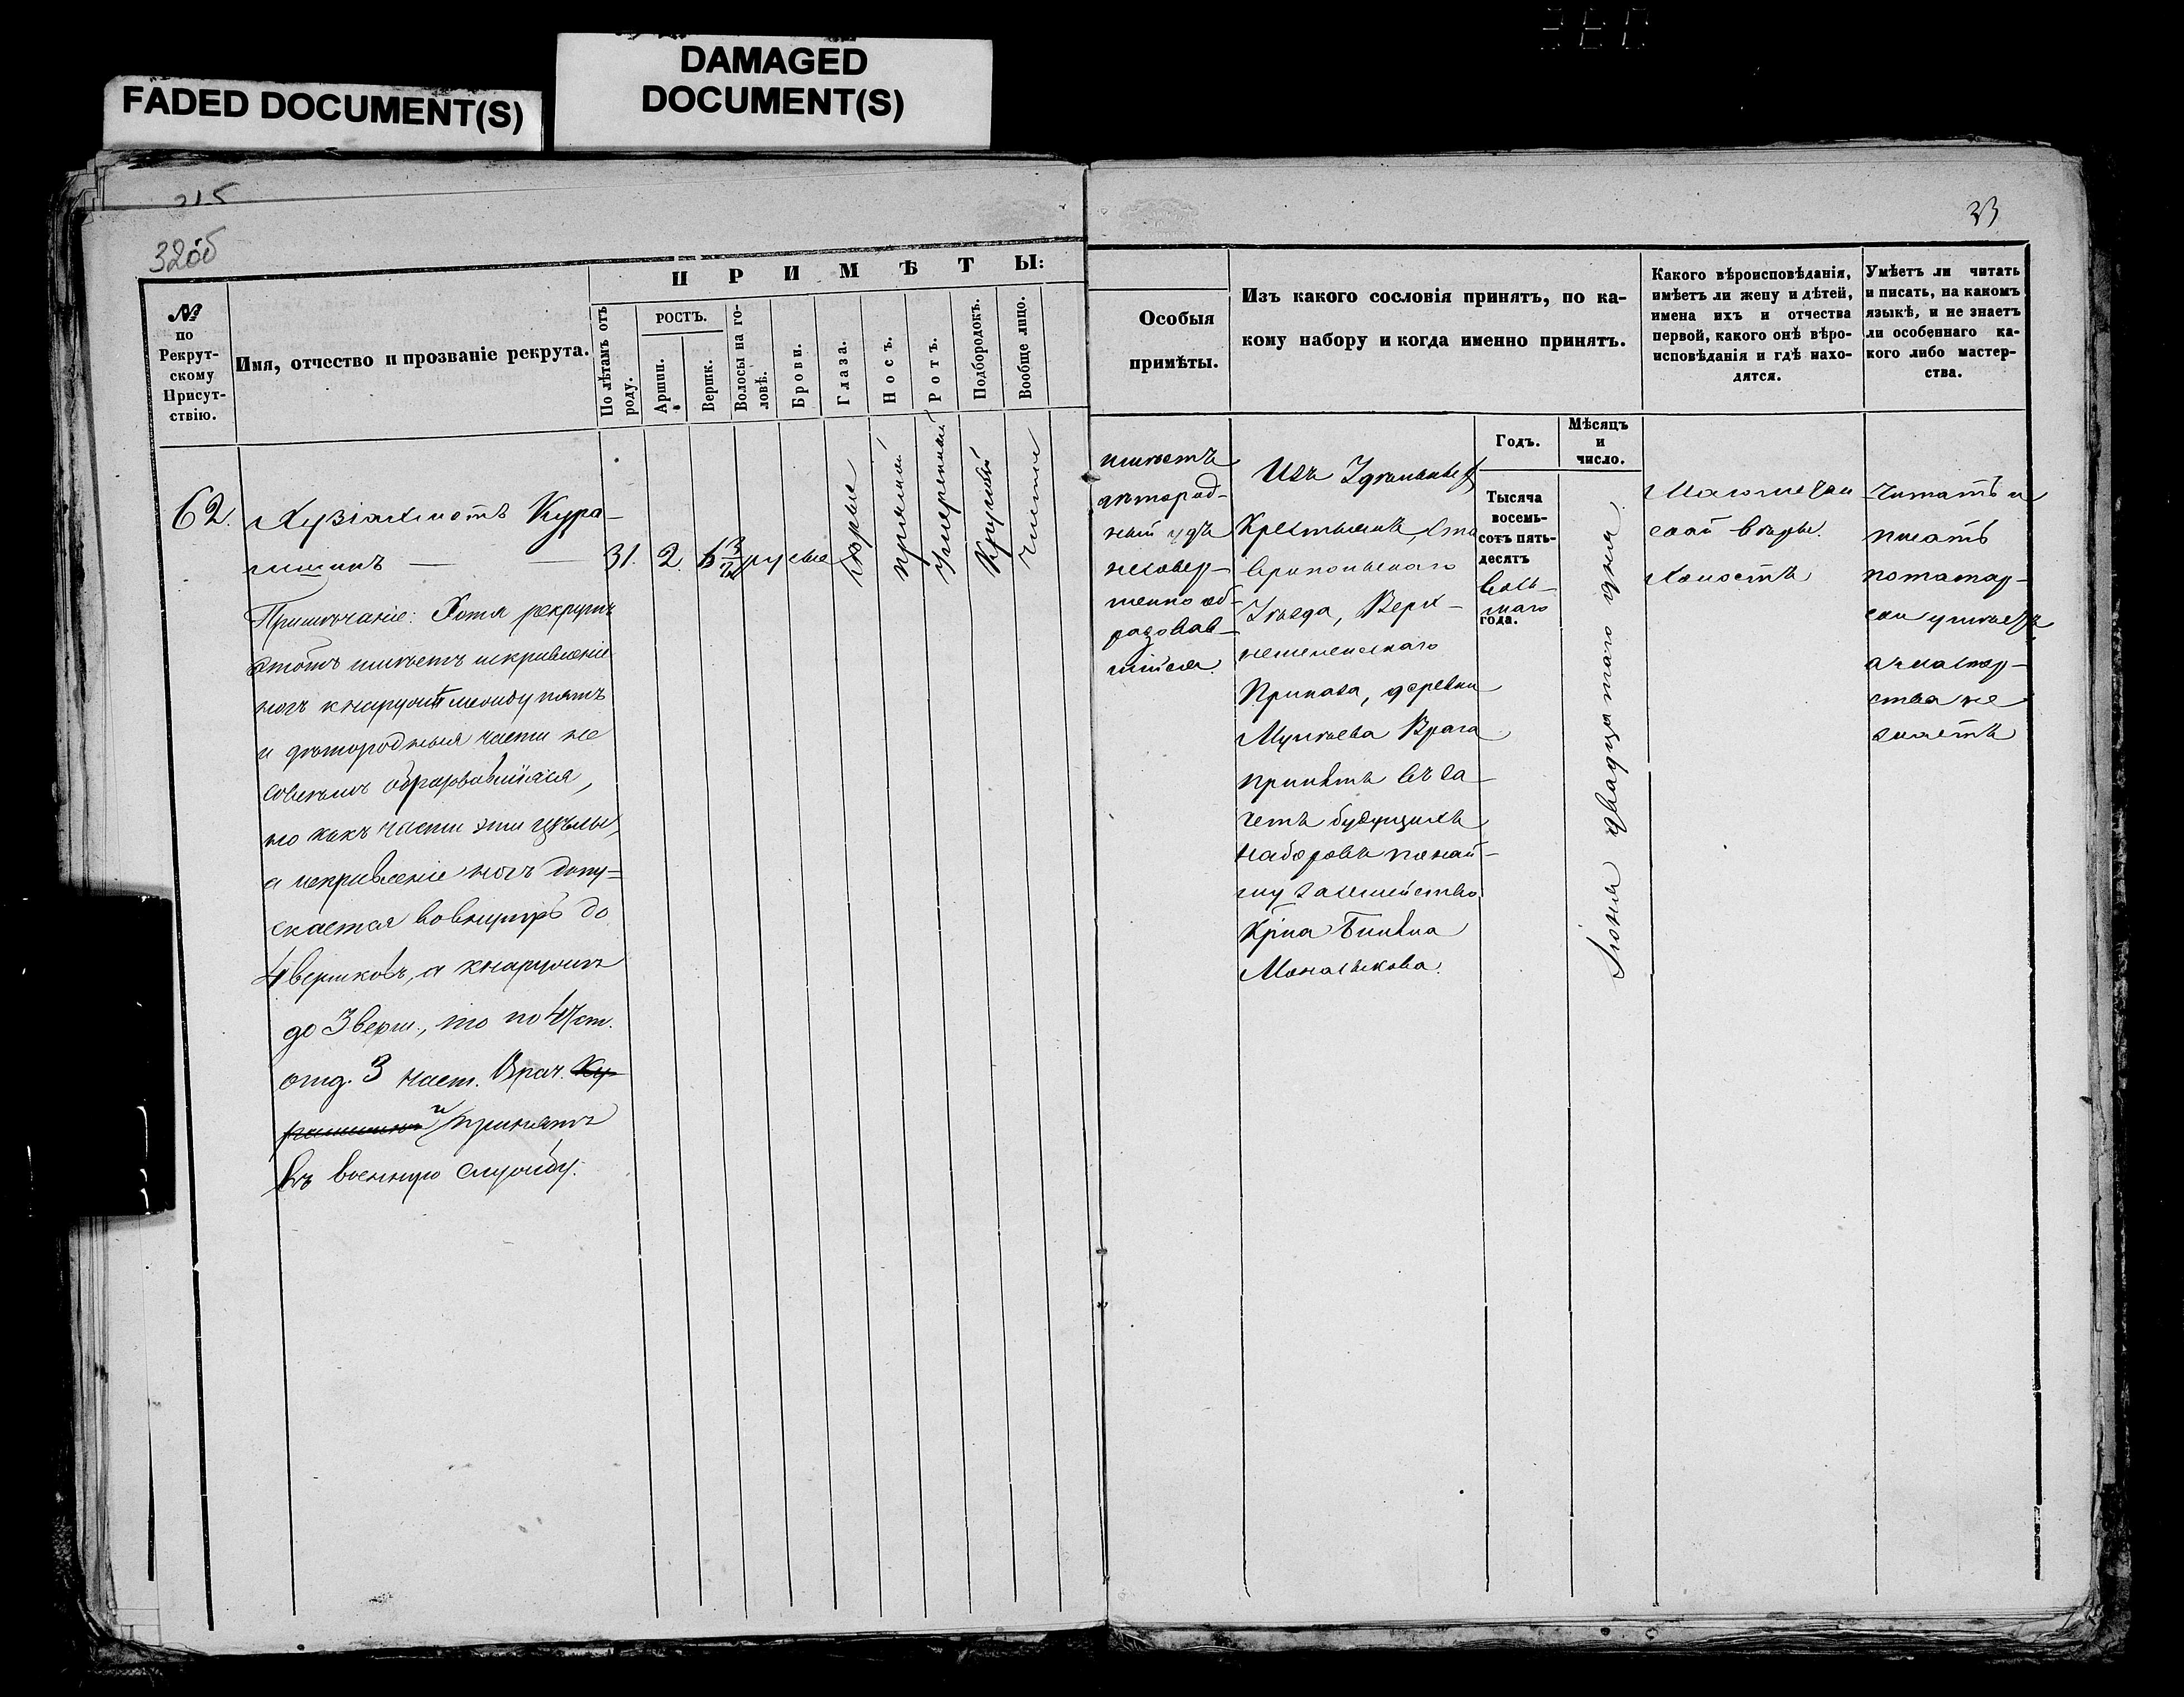 FADED DOCUMENT(S)
DAMAGED
DOCUMENT(S)
215
32об
33
№
по
Рекрут-
скому
Присут-
ствію.
Имя, отчество и прозваніе рекрута.
ПРИМѢТЫ:
По лѣтамъ отъ
роду.
РОСТЪ.
Аршин.
Вершк.
Волосы на го-
ловѣ.
Брови.
Глаза.
Носъ.
Ротъ.
Подбородокъ.
Вообще лицо.
Особыя
примѣты.
Изъ какого сословія принятъ, по ка-
кому набору и когда именно принятъ.
Годъ.
Мѣсяцъ
и
число.
Какого вѣроисповѣданія,
имѣетъ ли жену и дѣтей,
имена ихъ и отчества
первой, какого онѣ вѣро-
исповѣданія и гдѣ нахо-
дятся.
Умѣетъ ли читать
и писать, на какомъ
языкѣ, и не знаетъ
ли особеннаго ка-
кого либо мастер-
ства.
62.
Хузіахметъ Кура-
мшинъ
Примѣчаніе: Хотя рекрутъ
этотъ имѣетъ искривленіе
ногъ кнаружи между пятъ
и дѣтородныя части не
совсемъ образовавшіяся,
но какъ части эти цѣлы,
а искривленіе ногъ допу=
скается вовнутрь до
4 вершковъ, а кнаружи
до 3 верш., то по 47 ст.
отд. 3 наст. Врач. Ку
рамшинъ и принятъ
въ военную службу.
31.
2.
русые
карие
прямой
умеренный
Круглый
чистое
имѣетъ
дѣтород-
ный удъ
несовер-
шенно об-
разовав-
шійся.
Изъ Удѣльныхъ
Крестьянъ Ста
вропольскаго
Уѣзда, Верх-
немелекескаго
Приказа, деревни
Мулеева Врага
принятъ въ за
четъ будущихъ
наборовъ по най-
му за семейство
Крʼна Бикѣна
Монасыкова.
Тысяча
восемь-
сотъ пять-
десятъ
Вось-
маго
года.
Іюня двадцатаго дня
Магометан
ской вѣры.
Холостъ
Читать и
писать
потатар-
ски умѣетъ
а мастер-
ства не
знаетъ